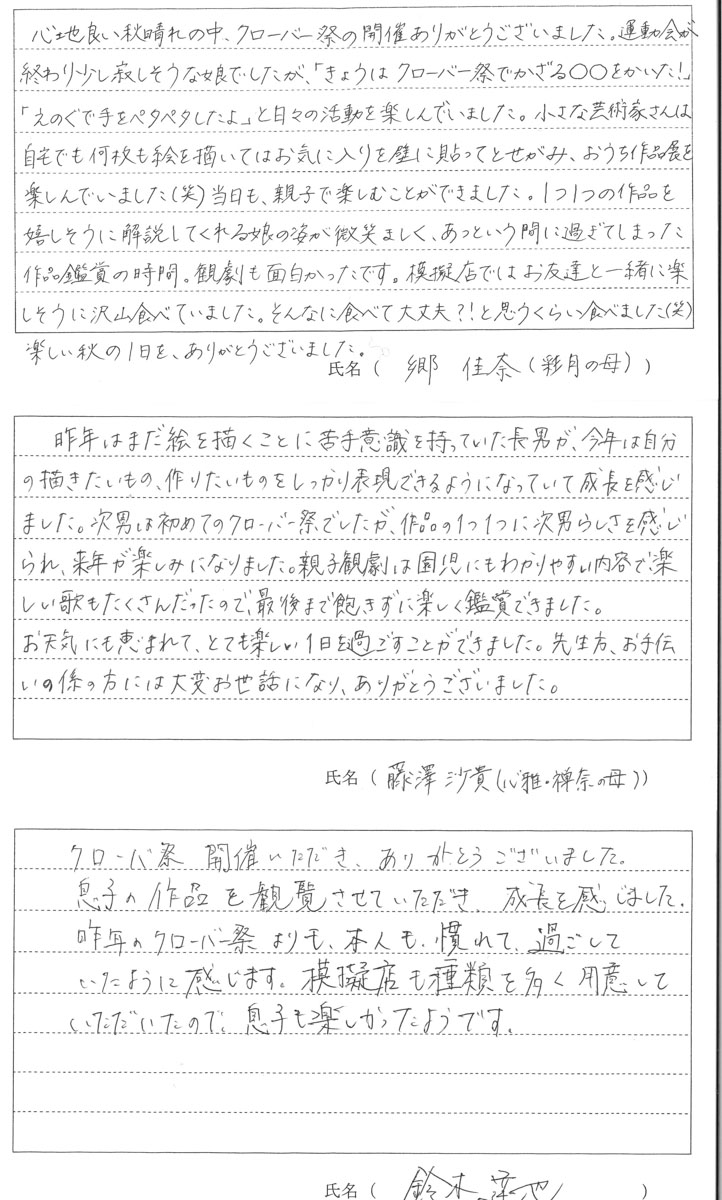 心地良い秋晴れの中、クローバー祭の開催ありがとうございました。運動会が
終わり少し寂しそうな娘でしたが、「きょうはクローバー祭でかざる〇〇をかいた!」
「えのぐで手をペタペタしたよ」と日々の活動を楽しんでいました。小さな芸術家さんは
自宅でも何枚も絵を描いてはお気に入りを壁に貼ってとせがみ、おうち作品展を
楽しんでいました(笑)当日も、親子で楽しむことができました。1つ1つの作品を
嬉しそうに解説してくれる娘の姿が微笑ましく、あっという間に過ぎてしまった
作品鑑賞の時間。観劇も面白かったです。模擬店ではお友達と一緒に楽
しそうに沢山食べていました。そんなに食べて大丈夫?!と思うくらい食べました(笑)
楽しい秋の1日を、ありがとうございました。
氏名( 郷 佳奈(彩月の母) )
昨年はまだ絵を描くことに苦手意識を持っていた長男が、今年は自分
の描きたいもの、作りたいものをしっかり表現できるようになっていて成長を感じ
ました。次男は初めてのクローバー祭でしたが、作品の1つ1つに次男らしさを感じ
られ、来年が楽しみになりました。親子観劇は園児にもわかりやすい内容で、楽
しい歌もたくさんだったので、最後まで飽きずに楽しく鑑賞できました。
お天気にも恵まれて、とても楽しい1日を過ごすことができました。先生方、お手伝
いの係の方には大変お世話になり、ありがとうございました。
氏名( 藤澤沙貴(心雅・禅奈の母))
クローバ祭 開催いただき、ありがとうございました。
息子の作品を観覧させていただき、成長を感じました。
昨年のクローバー祭よりも、本人も、慣れて、過ごして
いたように感じます。模擬店も種類を多く用意して
いただいたので、息子も楽しかったようです。
氏名( 鈴木 )